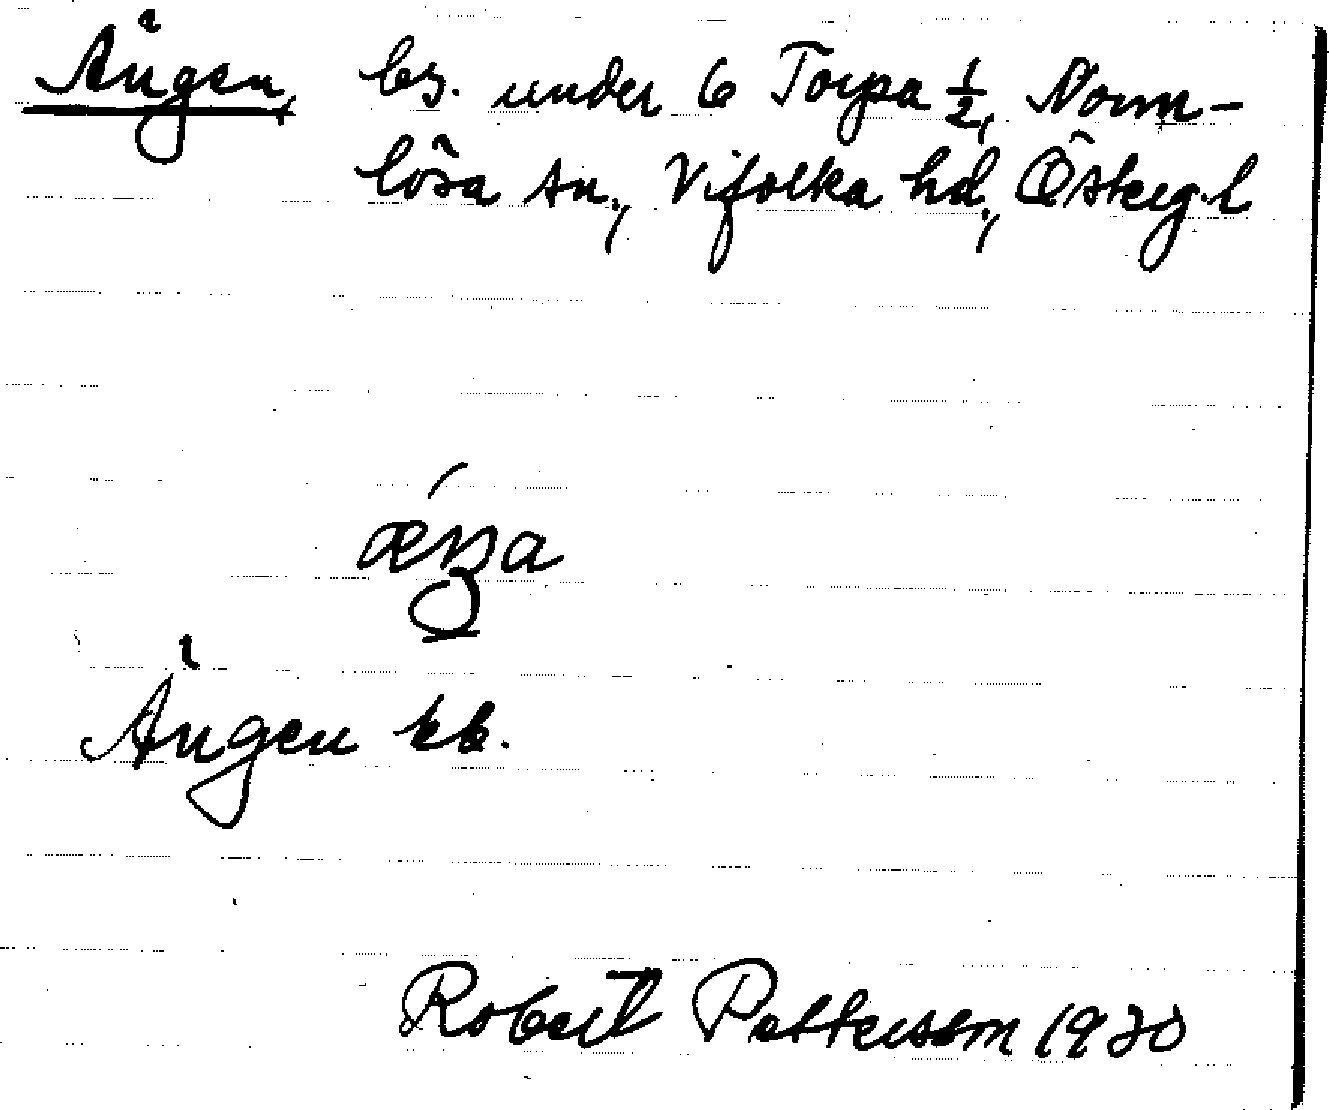 Ängen, bs. under 6 Torpa ½, Norm-
lösa sn., Vifolka hd., Österg.l
ǽŋa
Ängen kb.
Robert Pettersson 1930